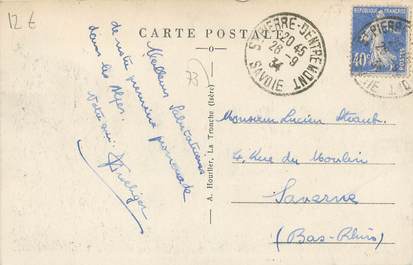 12 €
CARTE POSTALE
ST PIERRE-D'ENTREMONT
20 45
28 - 9
34
SAVOIE
RÉPUBLIQUE FRANÇAISE
40c
73
Meilleures Salutations
de notre dernière promenade
dans les Alpes.
Votre ami
A. Hourlier, La Tronche (Isère)
Monsieur Lucien Straub
4, Rue du Moulin
Saverne
(Bas-Rhin)